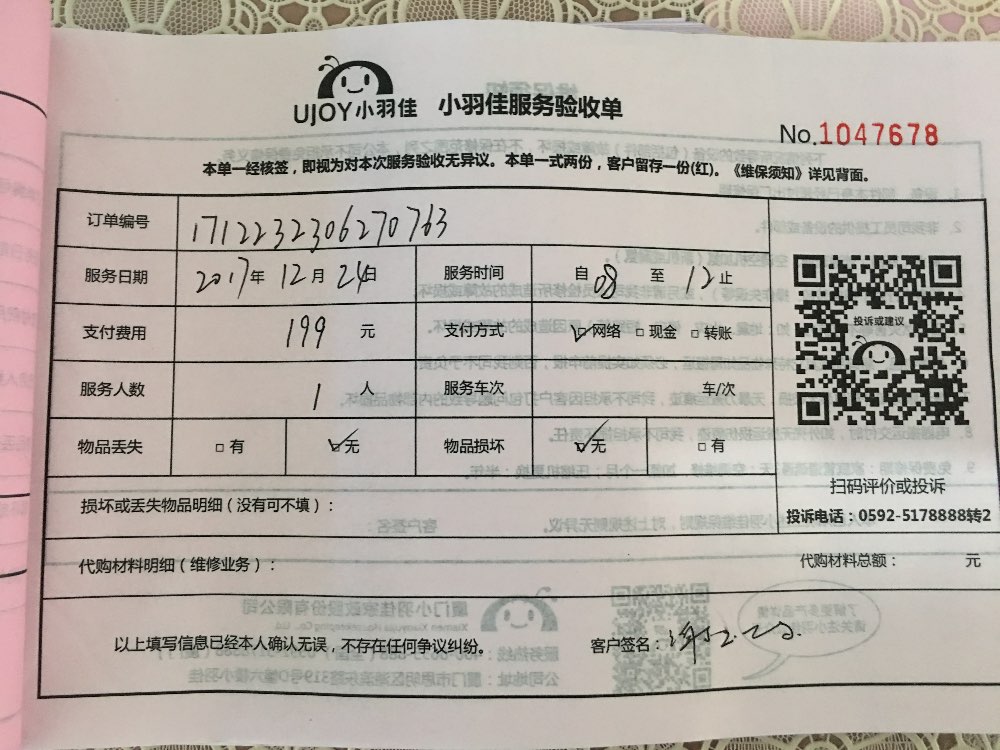 UJOY小羽佳 小羽佳服务验收单
No.1047678
本单一经核签，即视为对本次服务验收无异议。本单一式两份，客户留存一份(红)。《维保须知》详见背面。
订单编号 1712232306270763
服务日期 2017年 12月 24日 服务时间 自 08 至 12止
投诉或建议
支付费用 199 元 支付方式 ☑网络 □现金 □转账
服务人数 1 人 服务车次 车/次
物品丢失 □有 ☑无 物品损坏 ☑无 □有
扫码评价或投诉
投诉电话：0592-5178888转2
损坏或丢失物品明细（没有可不填）：
代购材料明细（维修业务）： 代购材料总额： 元
以上填写信息已经本人确认无误，不存在任何争议纠纷。 客户签名：